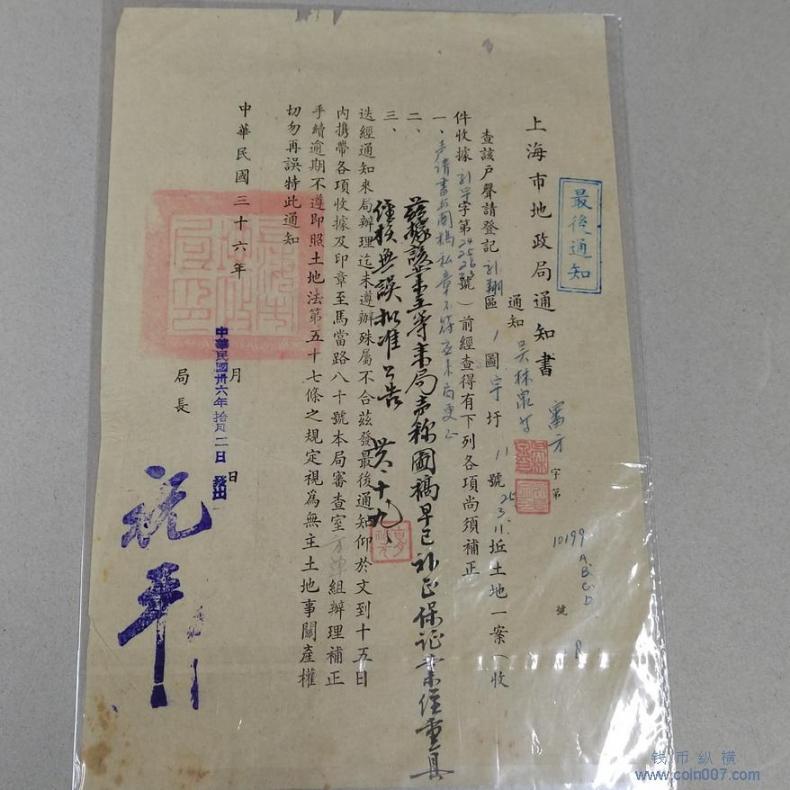 最後通知
上海市地政局通知書
字第 10199 A.B.C.D. 號
通知 吳林泉
查該戶聲請登記引翔區 圖 圩 11 號 坵土地一案（收
件收據 字第 號）前經查得有下列各項尚須補正
一、聲請書與圖稿私章不符應來局更正
二、茲據該業主等來局聲稱圖稿早已補正保証業經重具
三、經核無誤擬准公告
迭經通知來局辦理迄未遵辦殊屬不合茲發最後通知仰於文到十五日
內携帶各項收據及印章至馬當路八十號本局審查室 組辦理補正
手續逾期不遵即照土地法第五十七條之規定視為無主土地事關產權
切勿再誤特此通知
中華民國三十六年 月 日
中華民國卅六年拾月二日發出
局長
祝平
钱币纵横
www.coin007.com